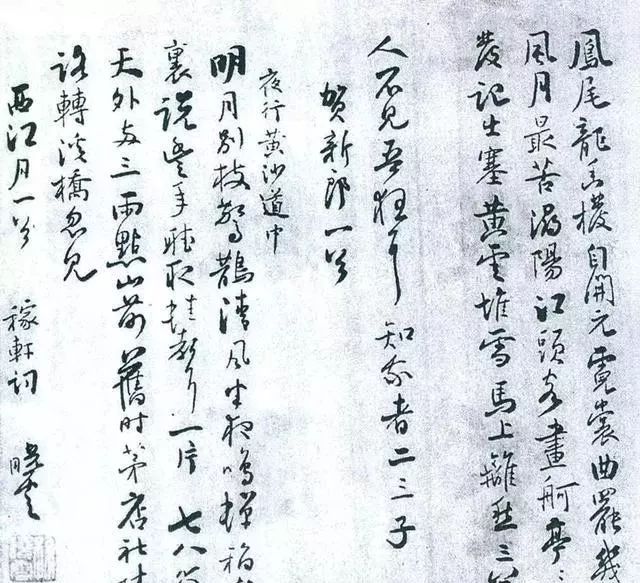 鳳尾龍香撥自開元霓裳曲罷幾
風月最苦潯陽江頭客畫舸亭
發記出塞黃雲堆雪馬上離愁三
人不見吾狂耳知我者二三子
賀新郎一首
夜行黃沙道中
明月別枝驚鵲清風半夜鳴蟬稻
裏說豐年聽取蛙聲一片七八
天外三兩點山前舊時茅店社
路轉溪橋忽見
西江月一首
稼軒詞